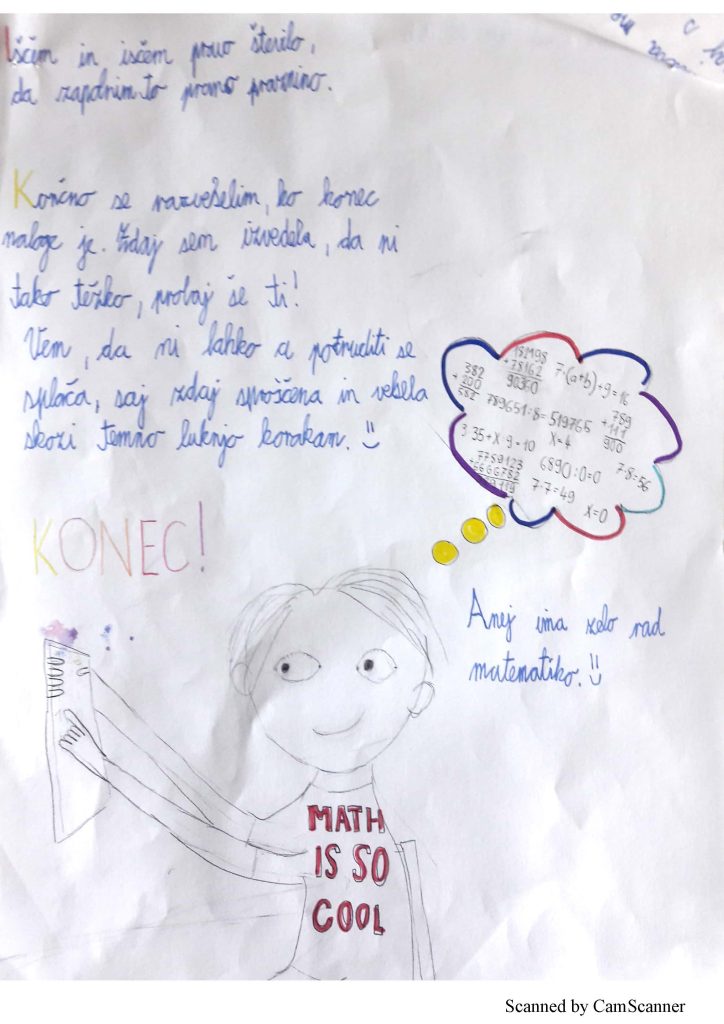 Iščem in iščem pravo število,
da zapolnim to pravo praznino.
Končno se razveselim, ko konec
naloge je. Zdaj sem izvedela, da ni
tako težko, probaj še ti!
Vem, da ni lahko a potruditi se
splača, saj zdaj sproščena in vesela
skozi temno luknjo korakam.
KONEC!
382
+ 200
582
12498
+ 78162
90360
7·(a+b)+9=16
789651:8=519765
789
+111
900
3 35+x·9=10
x=4
7789123
+6666782
6890:0=0
7·8=56
7·7=49
x=0
Anej ima zelo rad
matematiko.
MATH
IS SO
COOL
Scanned by CamScanner